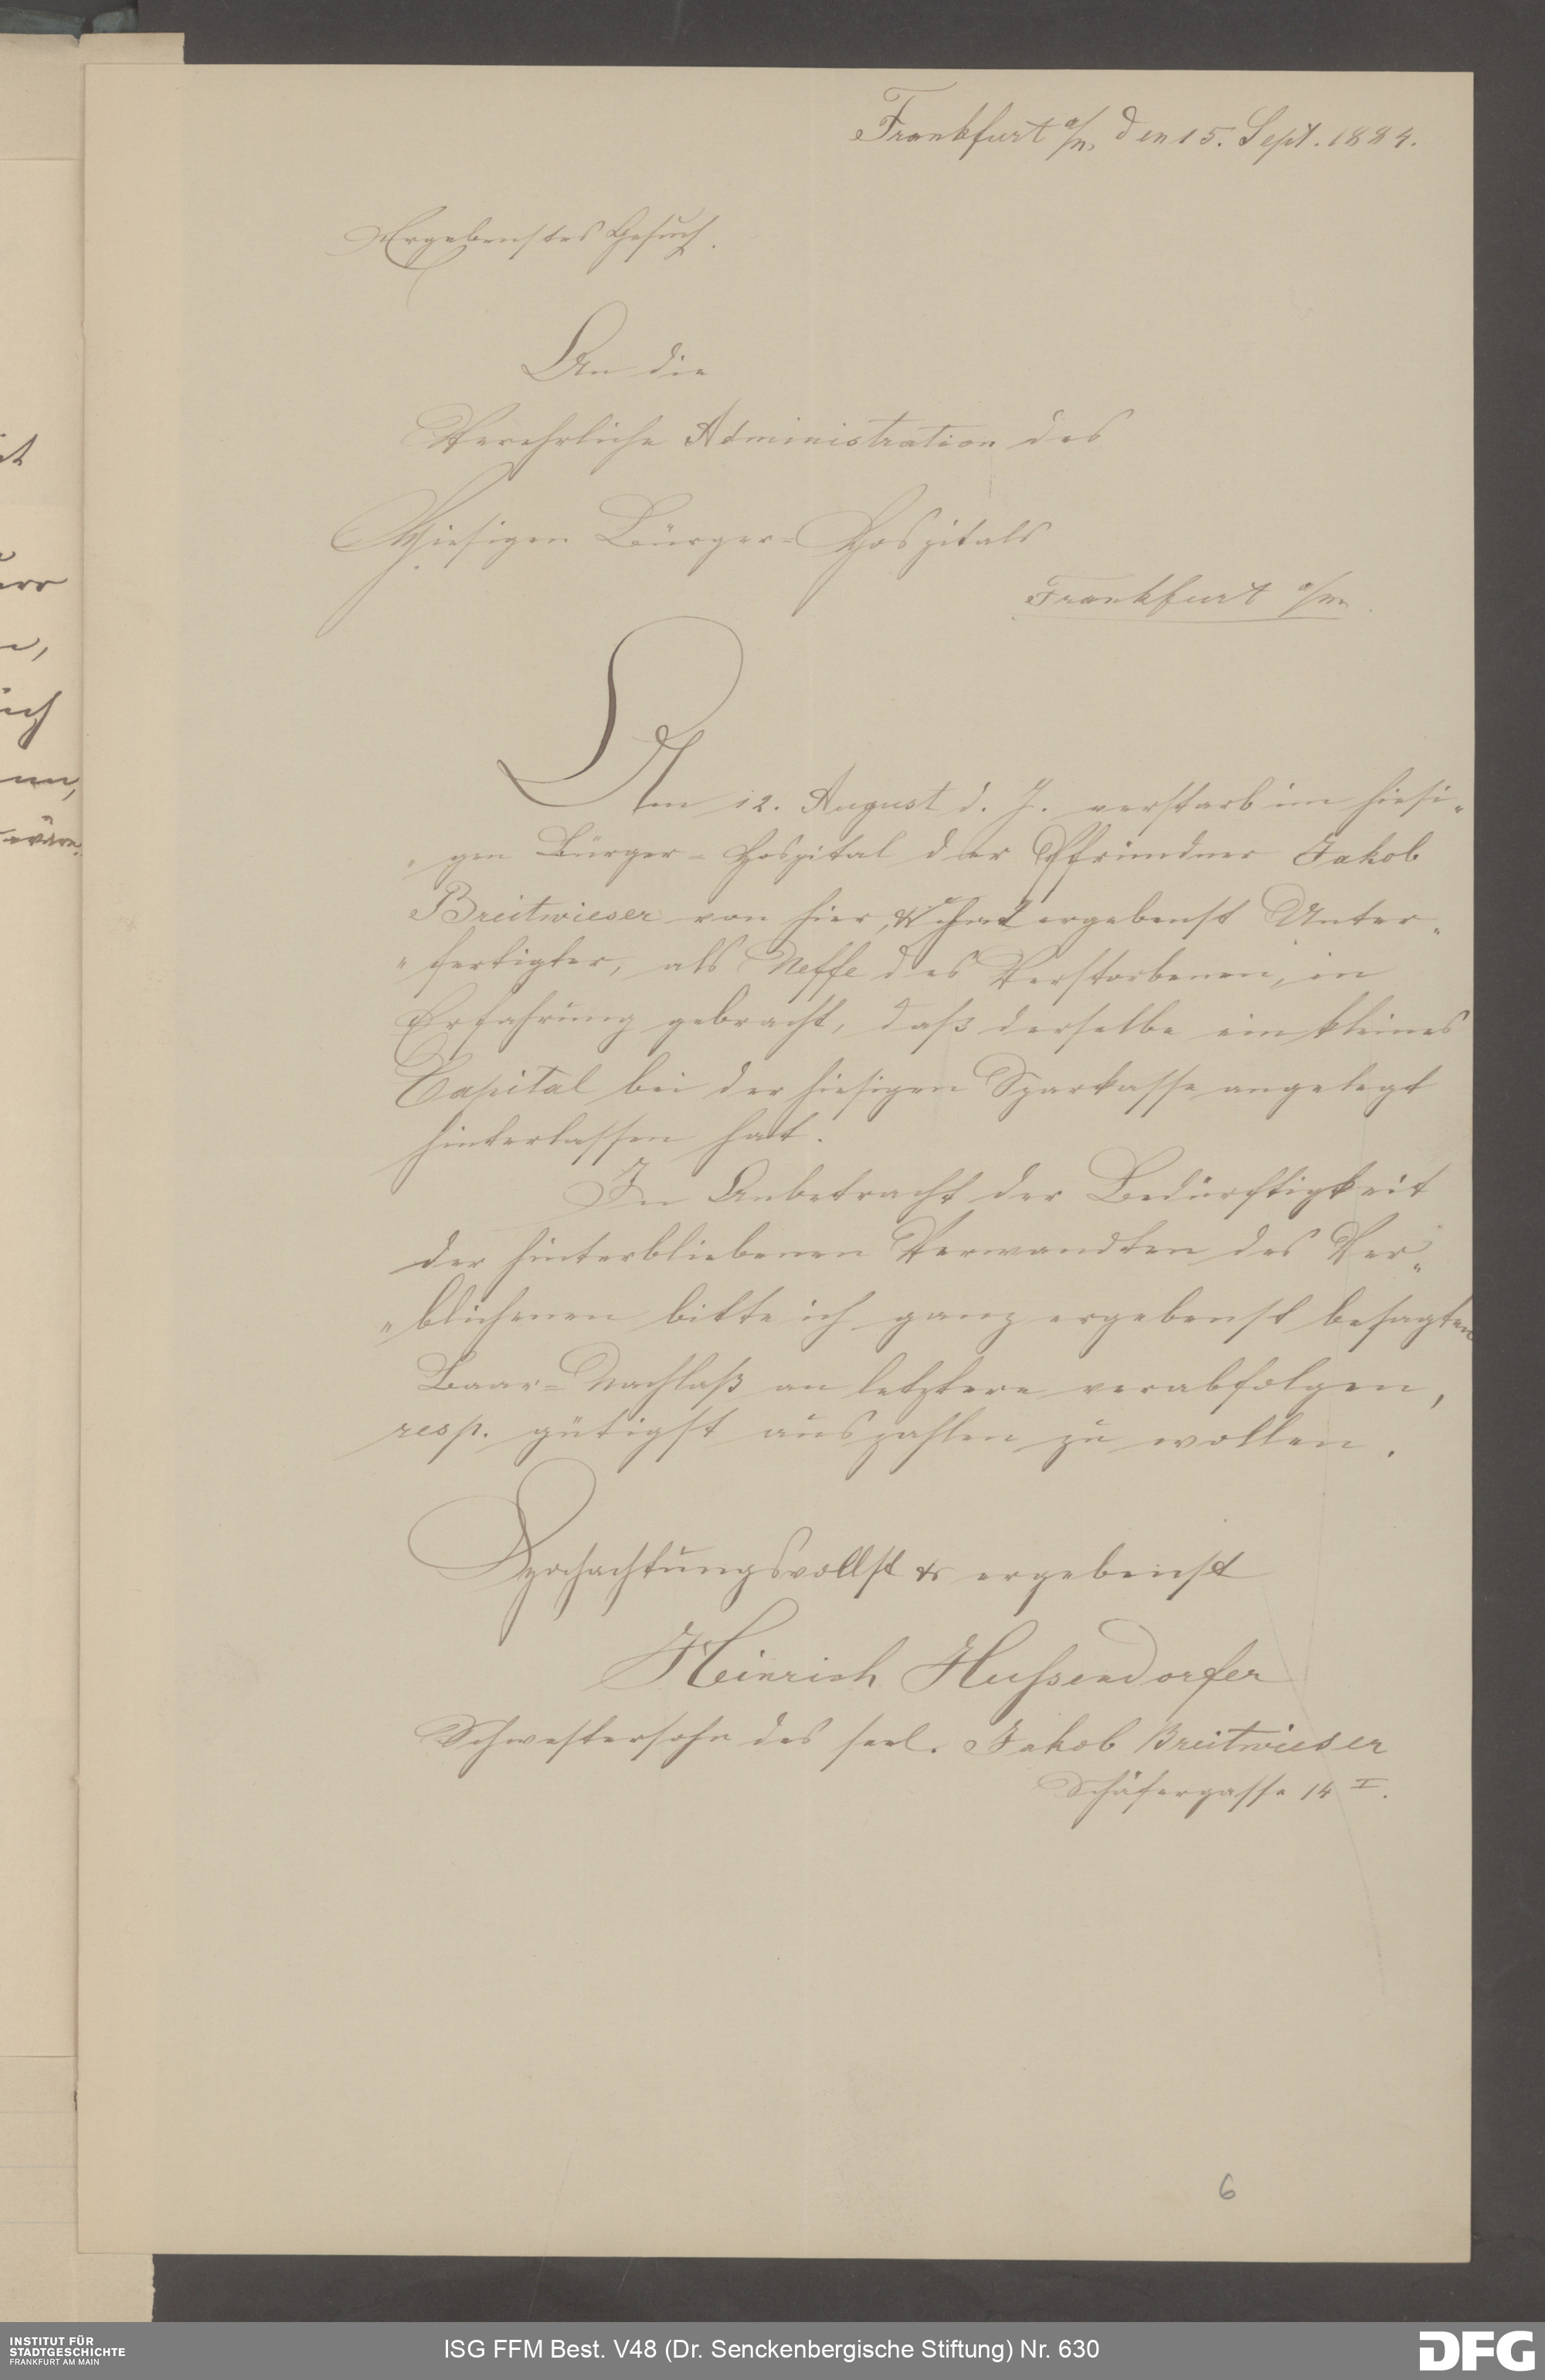 Frankfurt a/M, den 15. Sept. 1884.
Ergebenstes Gesuch.
An die
Verehrliche Administration des
Hiesigen Bürger-Hospitals
Frankfurt a/M.
Am 12. August d. J. verstarb im hiesi-
gen Bürger-Hospital der Pfründner Jakob
Breitwieser von hier, & hat ergebenst Unter-
fertigter, als Neffe des Verstorbenen, in
Erfahrung gebracht, daß derselbe ein kleines
Capital bei der hiesigen Sparkasse angelegt
hinterlassen hat.
In Anbetracht der Bedürftigkeit
der hinterbliebenen Verwandten des Ver-
blichenen bitte ich ganz ergebenst besagten
Baar-Nachlaß an letztere verabfolgen,
resp. gütigst auszahlen zu wollen.
Hochachtungsvollst & ergebenst
Heinrich Hussendorfer
Schwestersohn des seel. Jakob Breitwieser
Schäfergasse 14 I.
6
INSTITUT FÜR
STADTGESCHICHTE
FRANKFURT AM MAIN
ISG FFM Best. V48 (Dr. Senckenbergische Stiftung) Nr. 630
DFG